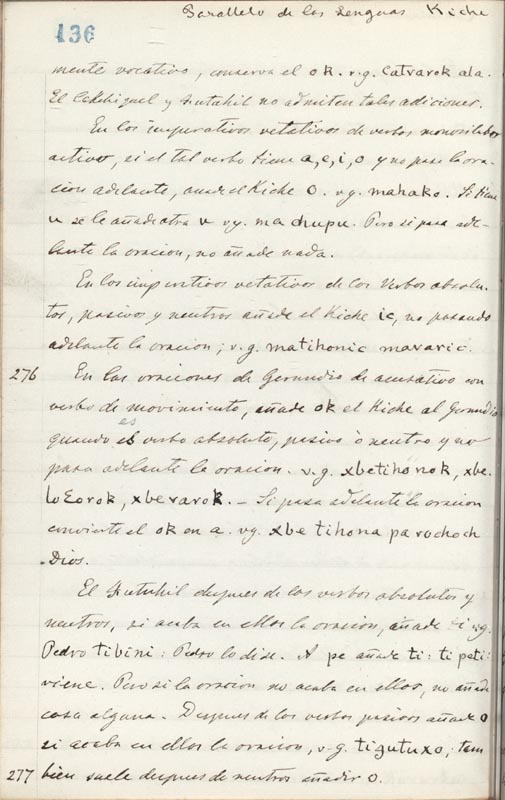 Parallelo de las Lenguas Kiche
136
mente vocativo, conserva el ok. v.g. catvarok ala.
El Cakchiquel y Zutuhil no admiten tales adiciones.
En los imperativos vetativos de verbos monosilabos
activos, si el tal verbo tiene a, e, i, o y no pasa la ora-
cion adelante, añade el Kiche o. v.g. mahako. Si tiene
u se le añade otra u vg. machupu. Pero si pasa ade-
lante la oracion, no añade nada.
En los imperativos vetativos de los Verbos absolu-
tos, pasivos y neutros añade el Kiche ic, no pasando
adelante la oracion; v.g. matihonic mavaric.
276 En las oraciones de Gerundio de acusativo con
verbo de movimiento, añade ok el Kiche al Gerundio
quando es verbo absoluto, pasivo ò neutro y no
pasa adelante la oracion. v.g. xbetihonok, xbe.
loƐorok, xbevarok. – Si pasa adelante la oracion
convierte el ok en a. vg. xbe tihona pa rochoch
Dios.
El Zutuhil despues de los verbos absolutos y
neutros, si acaba en ellos la oracion, añade i v.g.
Pedro tibini: Pedro lo dise. A pe añade ti: ti peti:
viene. Pero si la oracion no acaba en ellos, no añade
cosa alguna. Despues de los verbos pasivos añade o
si acaba en ellos la oracion, v.g. tigutuxo; tam
277 bien suele despues de neutros añadir o.